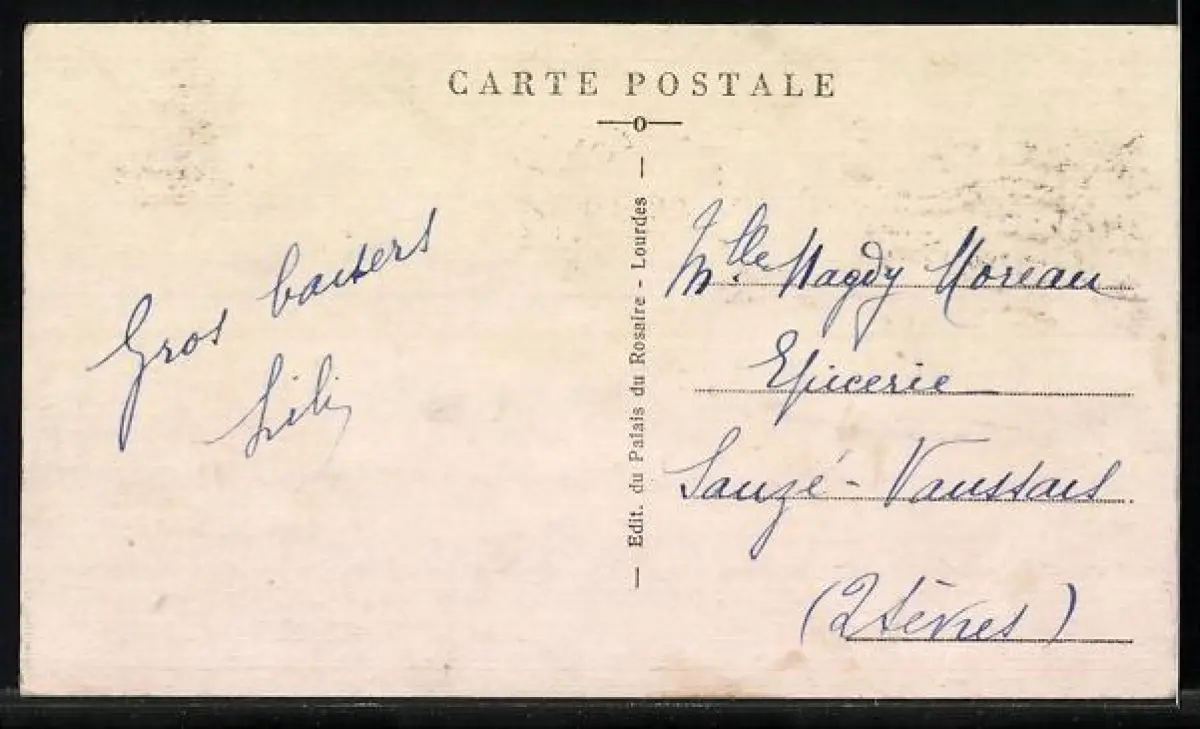 CARTE POSTALE
Gros baisers
Lili
Edit. du Palais du Rosaire - Lourdes
Mlle Magdy Moreau
Epicerie
Sauzé-Vaussais
(2 Sèvres)